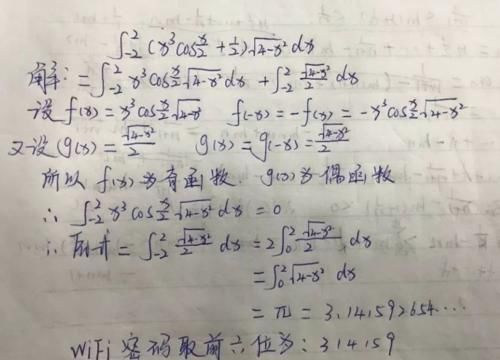 ∫₋₂² (x³cos x/2 + 1/2)√(4-x²) dx
解: = ∫₋₂² x³cos x/2 √(4-x²) dx + ∫₋₂² √(4-x²)/2 dx
设 f(x) = x³cos x/2 √(4-x²)  f(-x) = -f(x) = -x³cos x/2 √(4-x²)
又设 g(x) = √(4-x²)/2  g(x) = g(-x) = √(4-x²)/2
所以 f(x)为奇函数. g(x)为偶函数
∴ ∫₋₂² x³cos x/2 √(4-x²) dx = 0
∴ 原式 = ∫₋₂² √(4-x²)/2 dx = 2∫₀² √(4-x²)/2 dx
= ∫₀² √(4-x²) dx
= π = 3.141592654...
WiFi 密码取前六位为: 314159